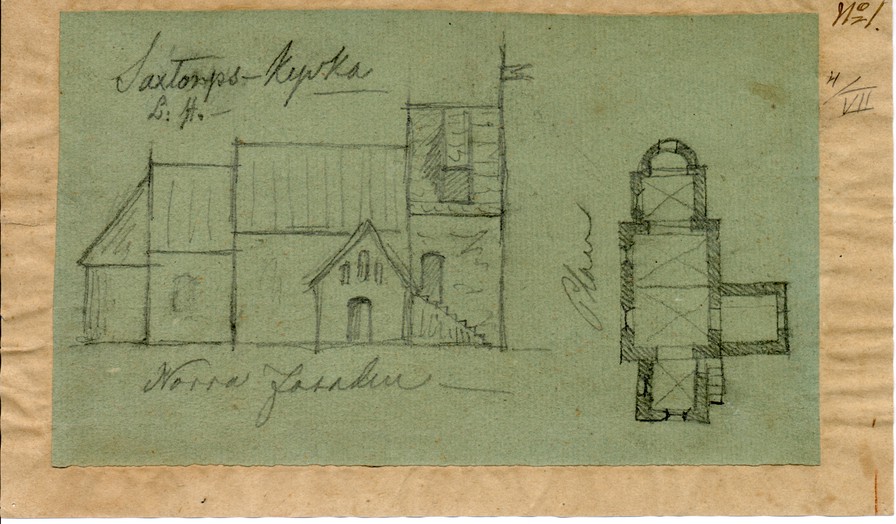 Saxtorps-Kyrka
L: H.-
Norra Fasaden
Plan
No 1.
VII